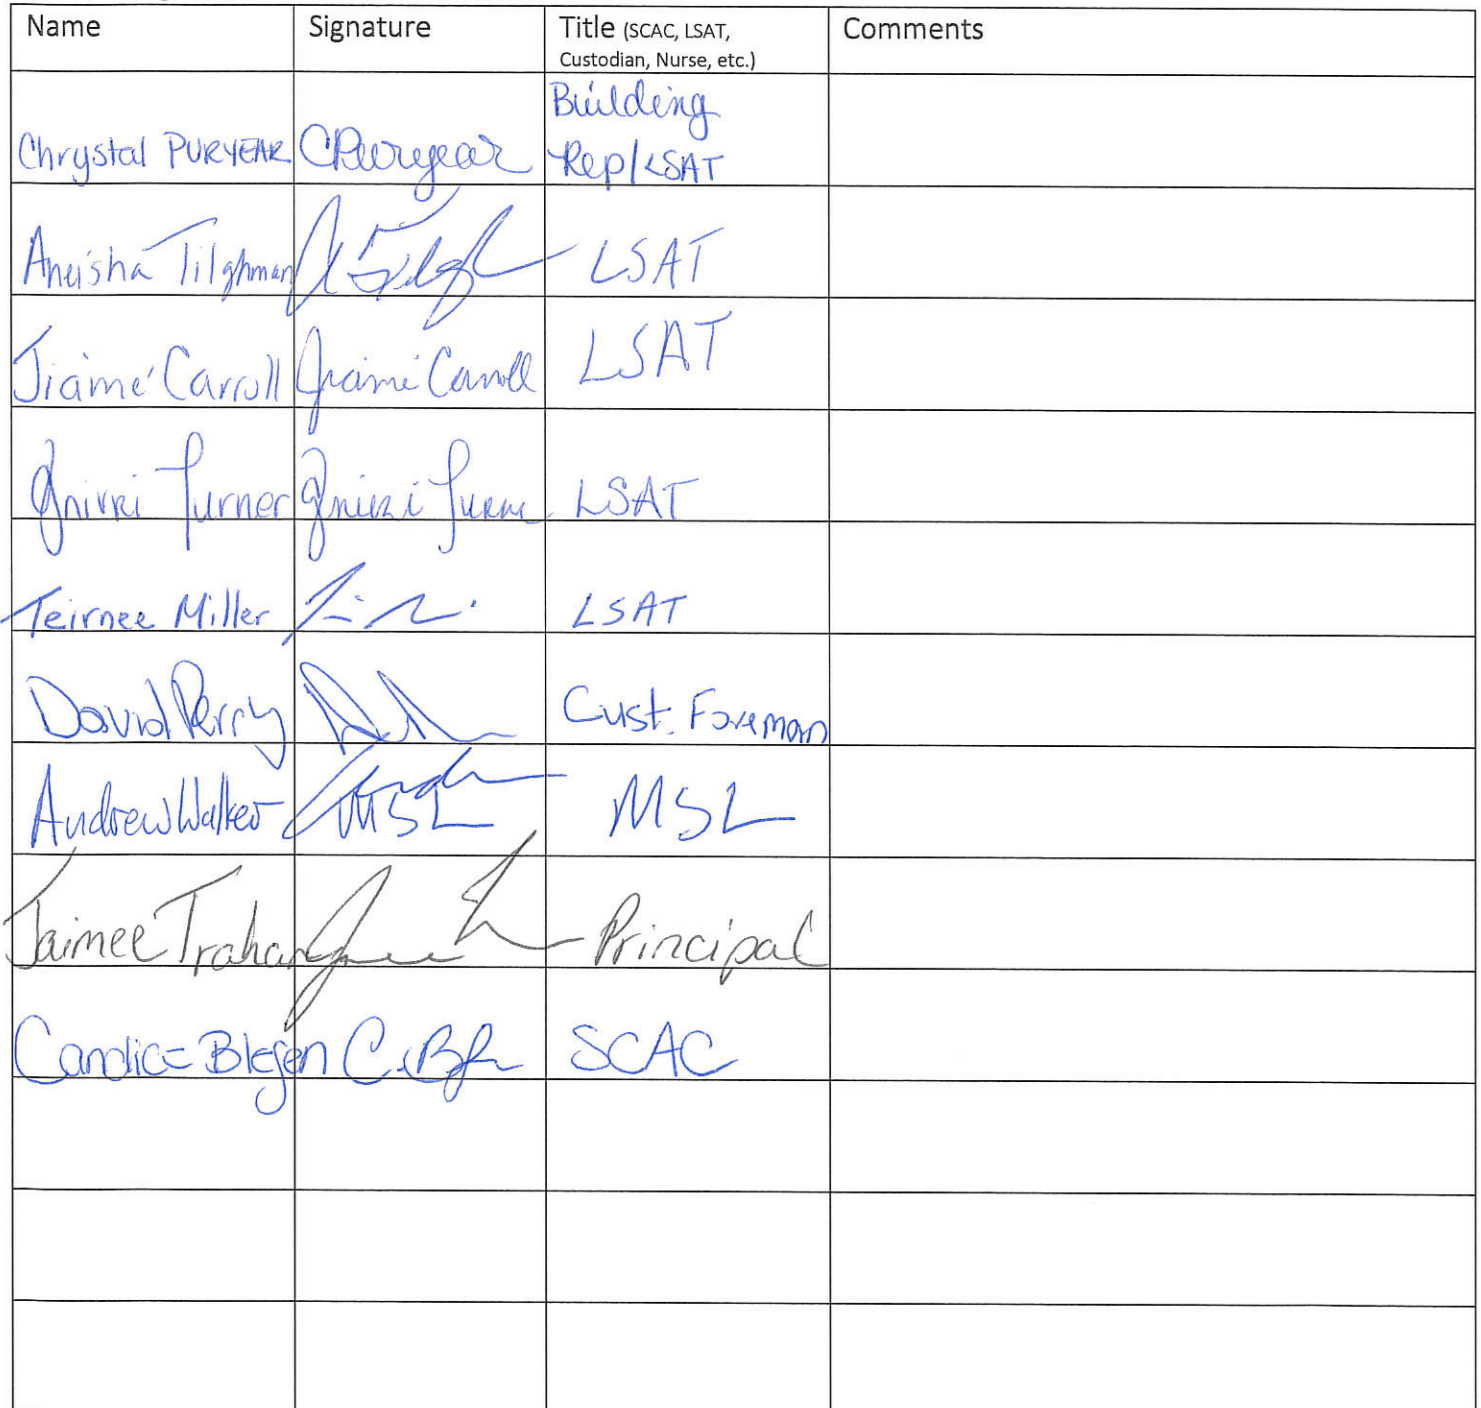 Name Signature Title (SCAC, LSAT, Comments
Custodian, Nurse, etc.)
Building
Chrystal PURYEAR CPuryear Rep/LSAT
Aneisha Tilghman LSAT
Jiamé Carroll Jiamé Carroll LSAT
Turner LSAT
Teirnee Miller LSAT
David Perry Cust. Foreman
Andrew Walker MSL MSL
Jaimee Trahan Principal
Candice Blegen SCAC